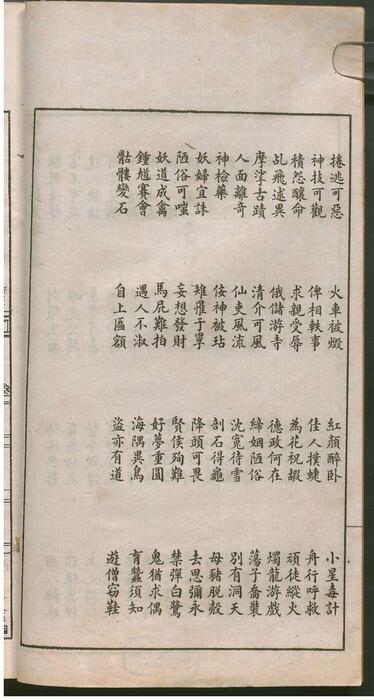 捲逃可惡 火車被燬 紅顏醉卧 小星毒計
神技可觀 俾相軼事 佳人撲蜨 舟行呼救
積怨釀命 求親受辱 為花祝嘏 頑徒縱火
乩飛述異 俄儲游寺 德政何在 燭龍游戲
摩挲古蹟 清介可風 締姻陋俗 蕩子喬裝
人面離奇 仙吏風流 沈寃待雪 別有洞天
神檢藥 侫神被玷 剖石得龜 母豬脫殼
妖婦宜誅 雉罹于罦 降頭可畏 去思彌永
陋俗可嗤 妄想發財 賢侯殉難 禁彈白鷺
妖道成禽 馬屁難拍 好夢重圓 鬼猶求偶
鍾馗賽會 遇人不淑 海隅異鳥 育蠶須知
骷髏變石 自上區額 盜亦有道 遊僧窃鞋